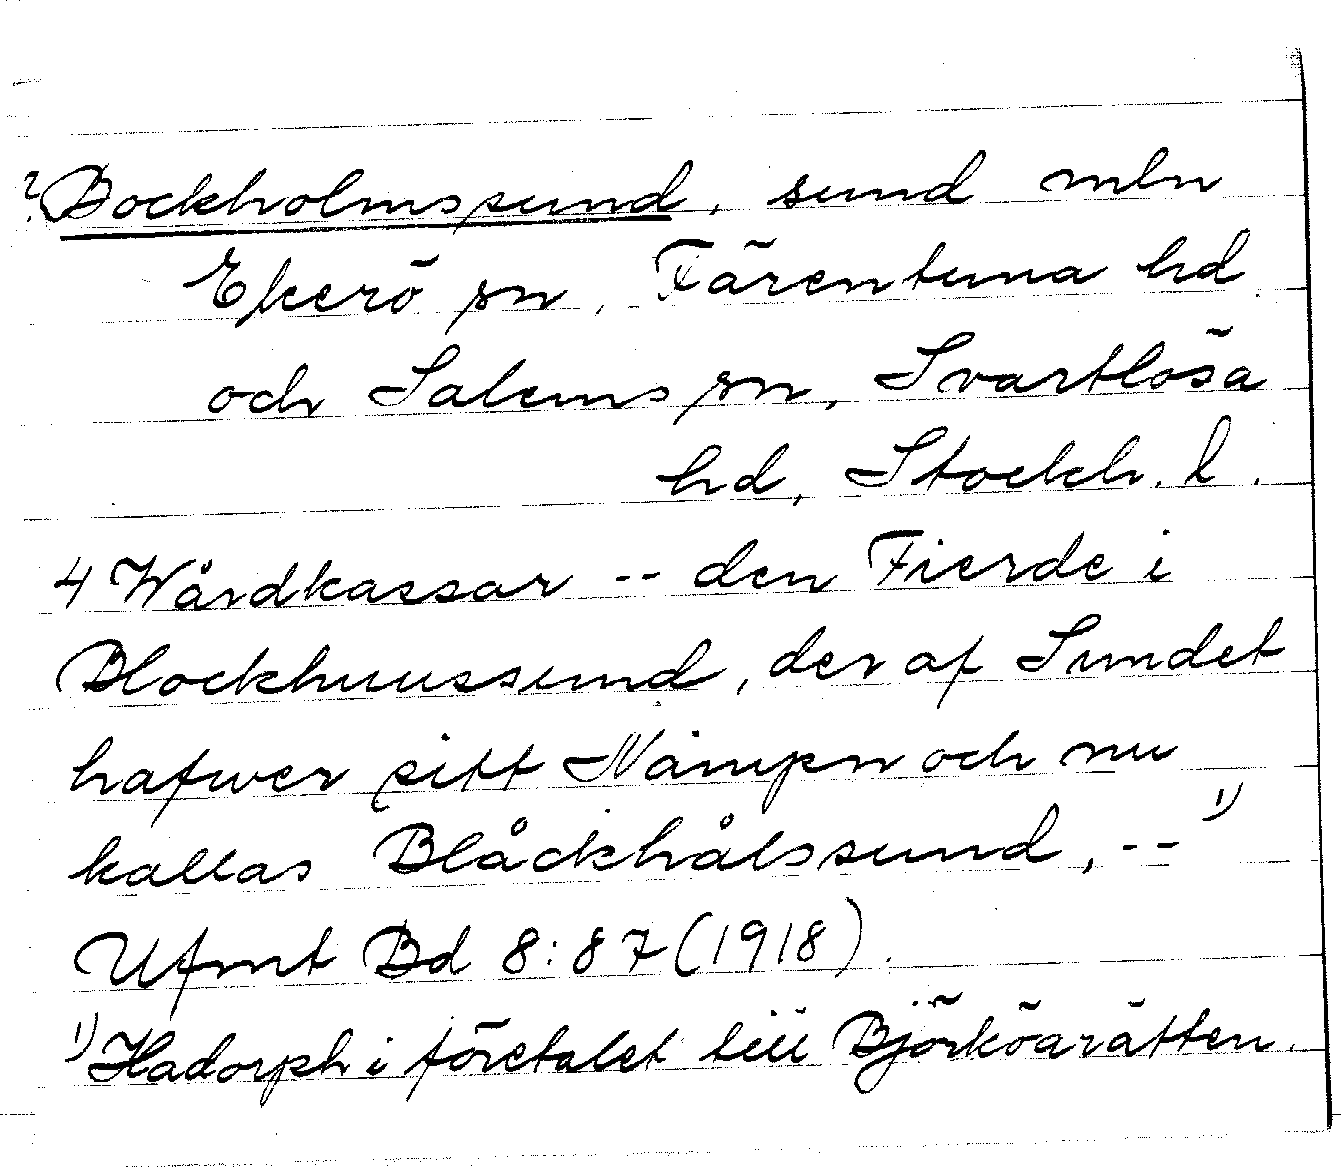 ? Bockholmssund, sund mln
Ekerö sn, Färentuna hd
och Salems sn, Svartlösa
hd, Stockh. l.
4 Wårdkassar -- den Fierde i
Blockhuussund, der af Sundet
hafwer sitt Nämpn och nu
kallas Blåckhålssund, -- 1)
Ufmt Bd 8:87 (1918).
1) Hadorph i företalet till Björköarätten.